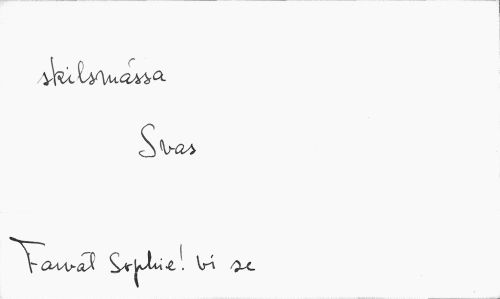 skilsmässa
Svas
Farväl Sophie! vi se